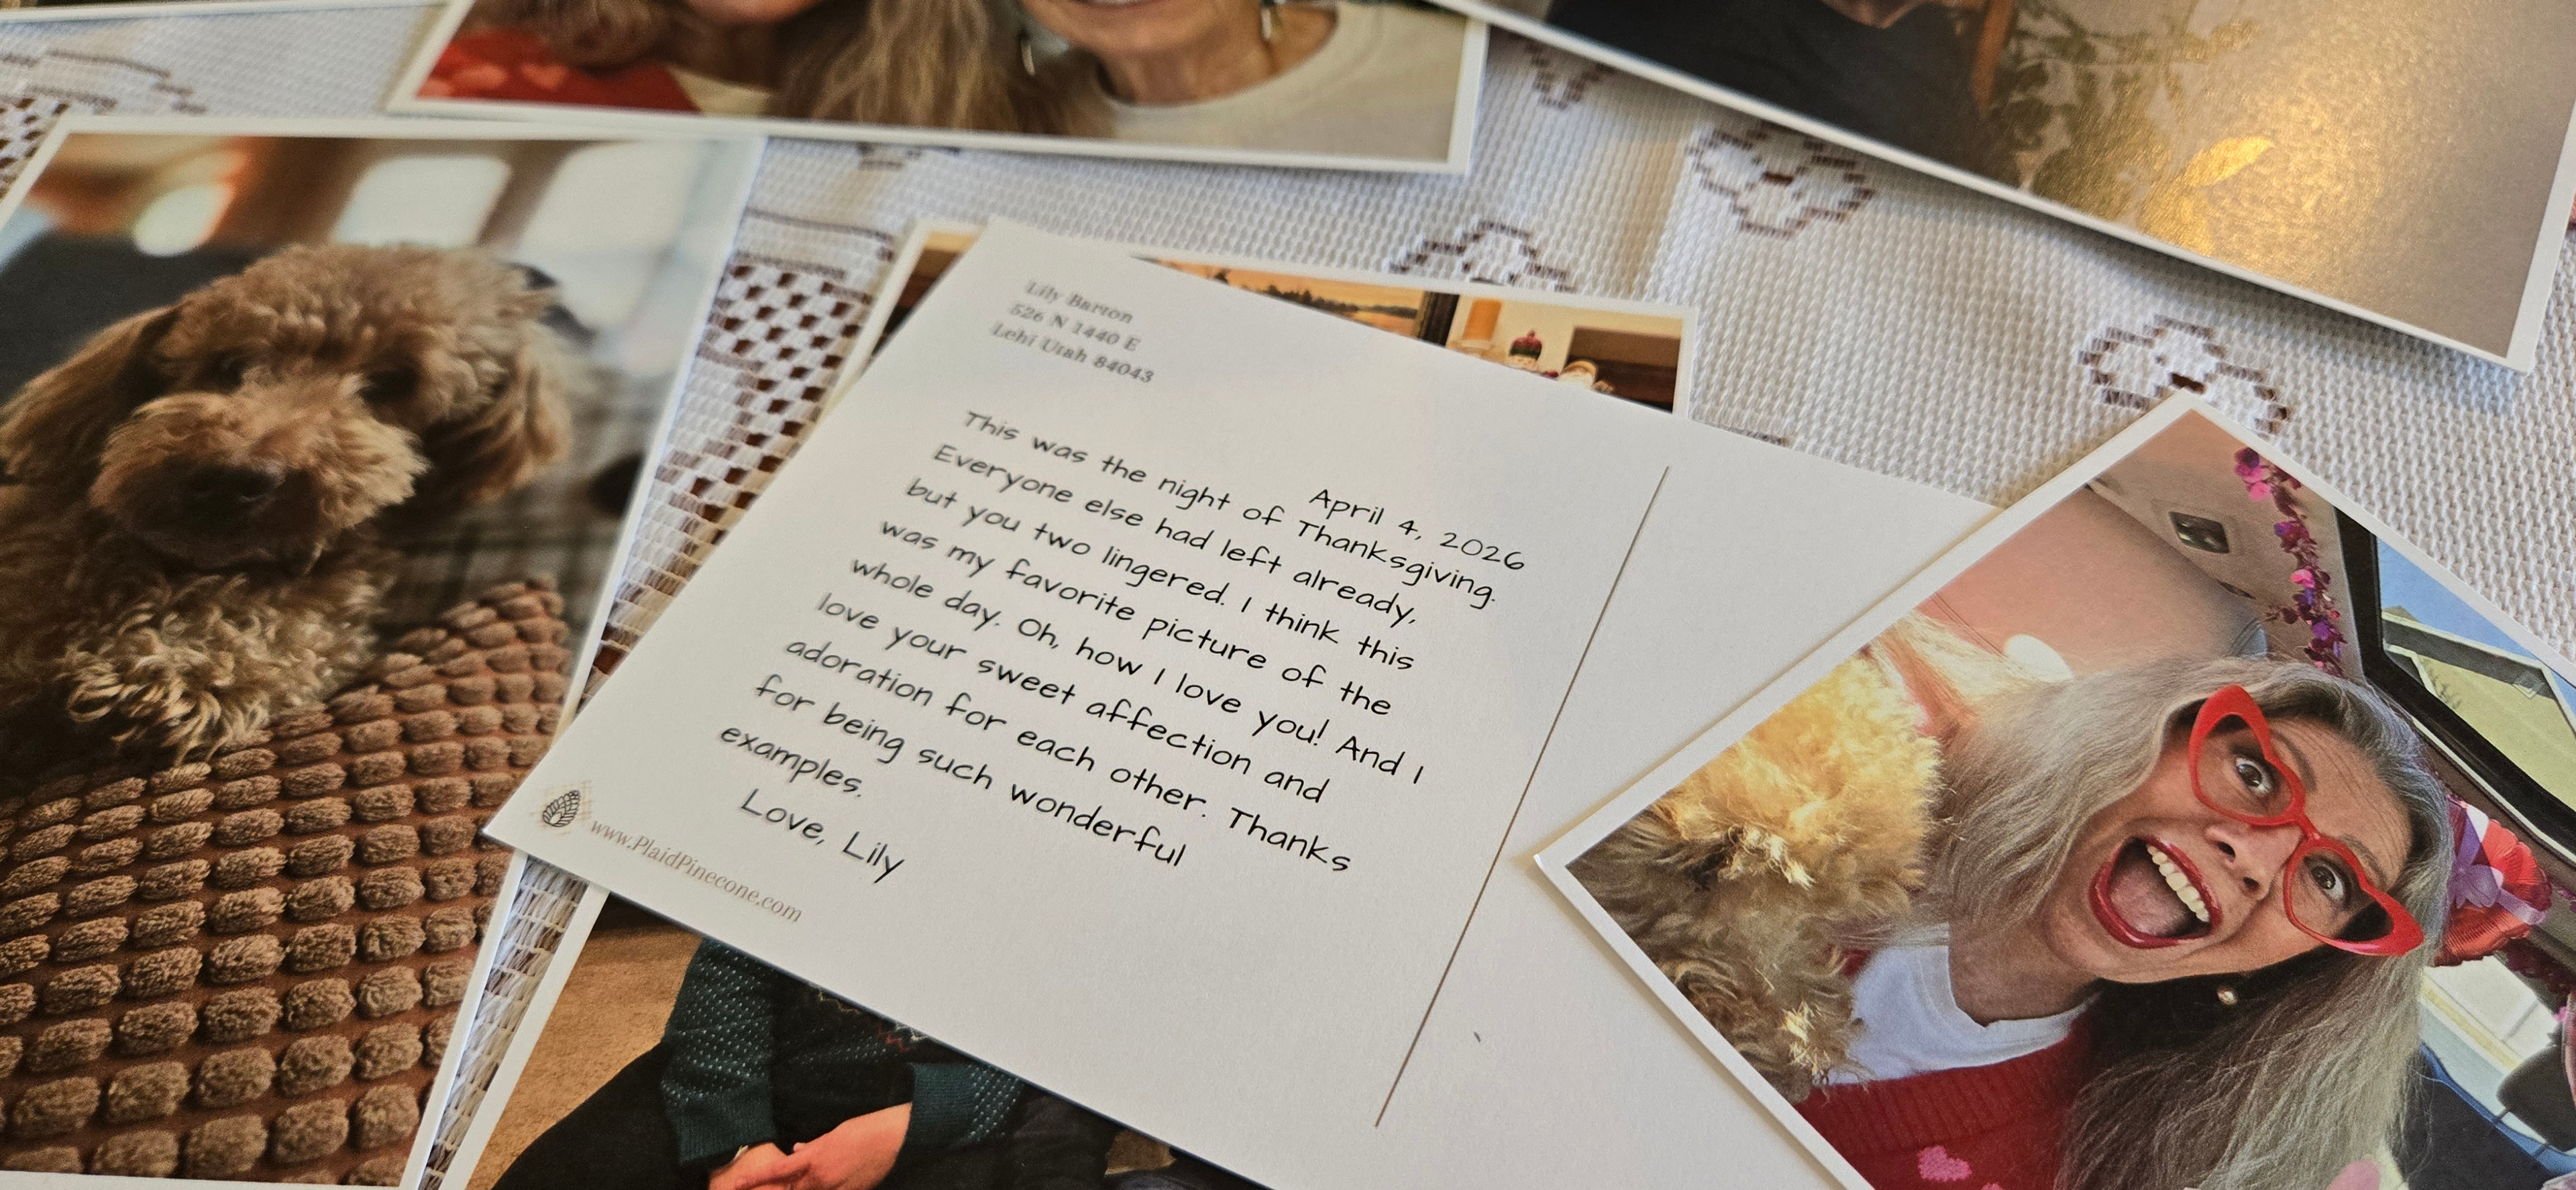 Lily Barton
526 N 1440 E
Lehi Utah 84043
April 4, 2026
This was the night of Thanksgiving.
Everyone else had left already,
but you two lingered. I think this
was my favorite picture of the
whole day. Oh, how I love you! And I
love your sweet affection and
adoration for each other. Thanks
for being such wonderful
examples.
Love, Lily
www.PlaidPinecone.com